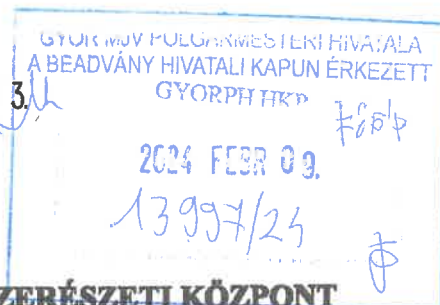 GYŐR MJV POLGÁRMESTERI HIVATALA
A BEADVÁNY HIVATALI KAPUN ÉRKEZETT
3.
GYORPH HKP
2024 FEBR 09.
13997/24
ZERÉSZETI KÖZPONT